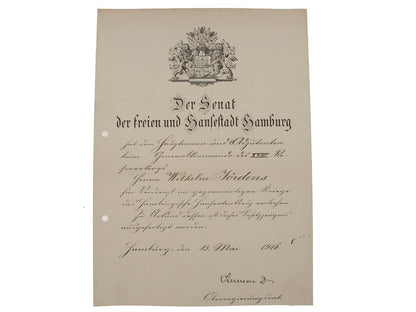 Der Senat
der freien und Hansestadt Hamburg
hat dem Hauptmann und Adjutanten
beim Generalkommando des XXIII. Re-
servekorps
Herrn Wilhelm Jördens
für Verdienst im gegenwärtigen Kriege
das Hamburgische Hanseatenkreuz verliehen.
Zu Urkund dessen ist dieses Besitzzeugnis
ausgefertigt worden.
Hamburg, den 13. Mai 1916
Oberregierungsrat